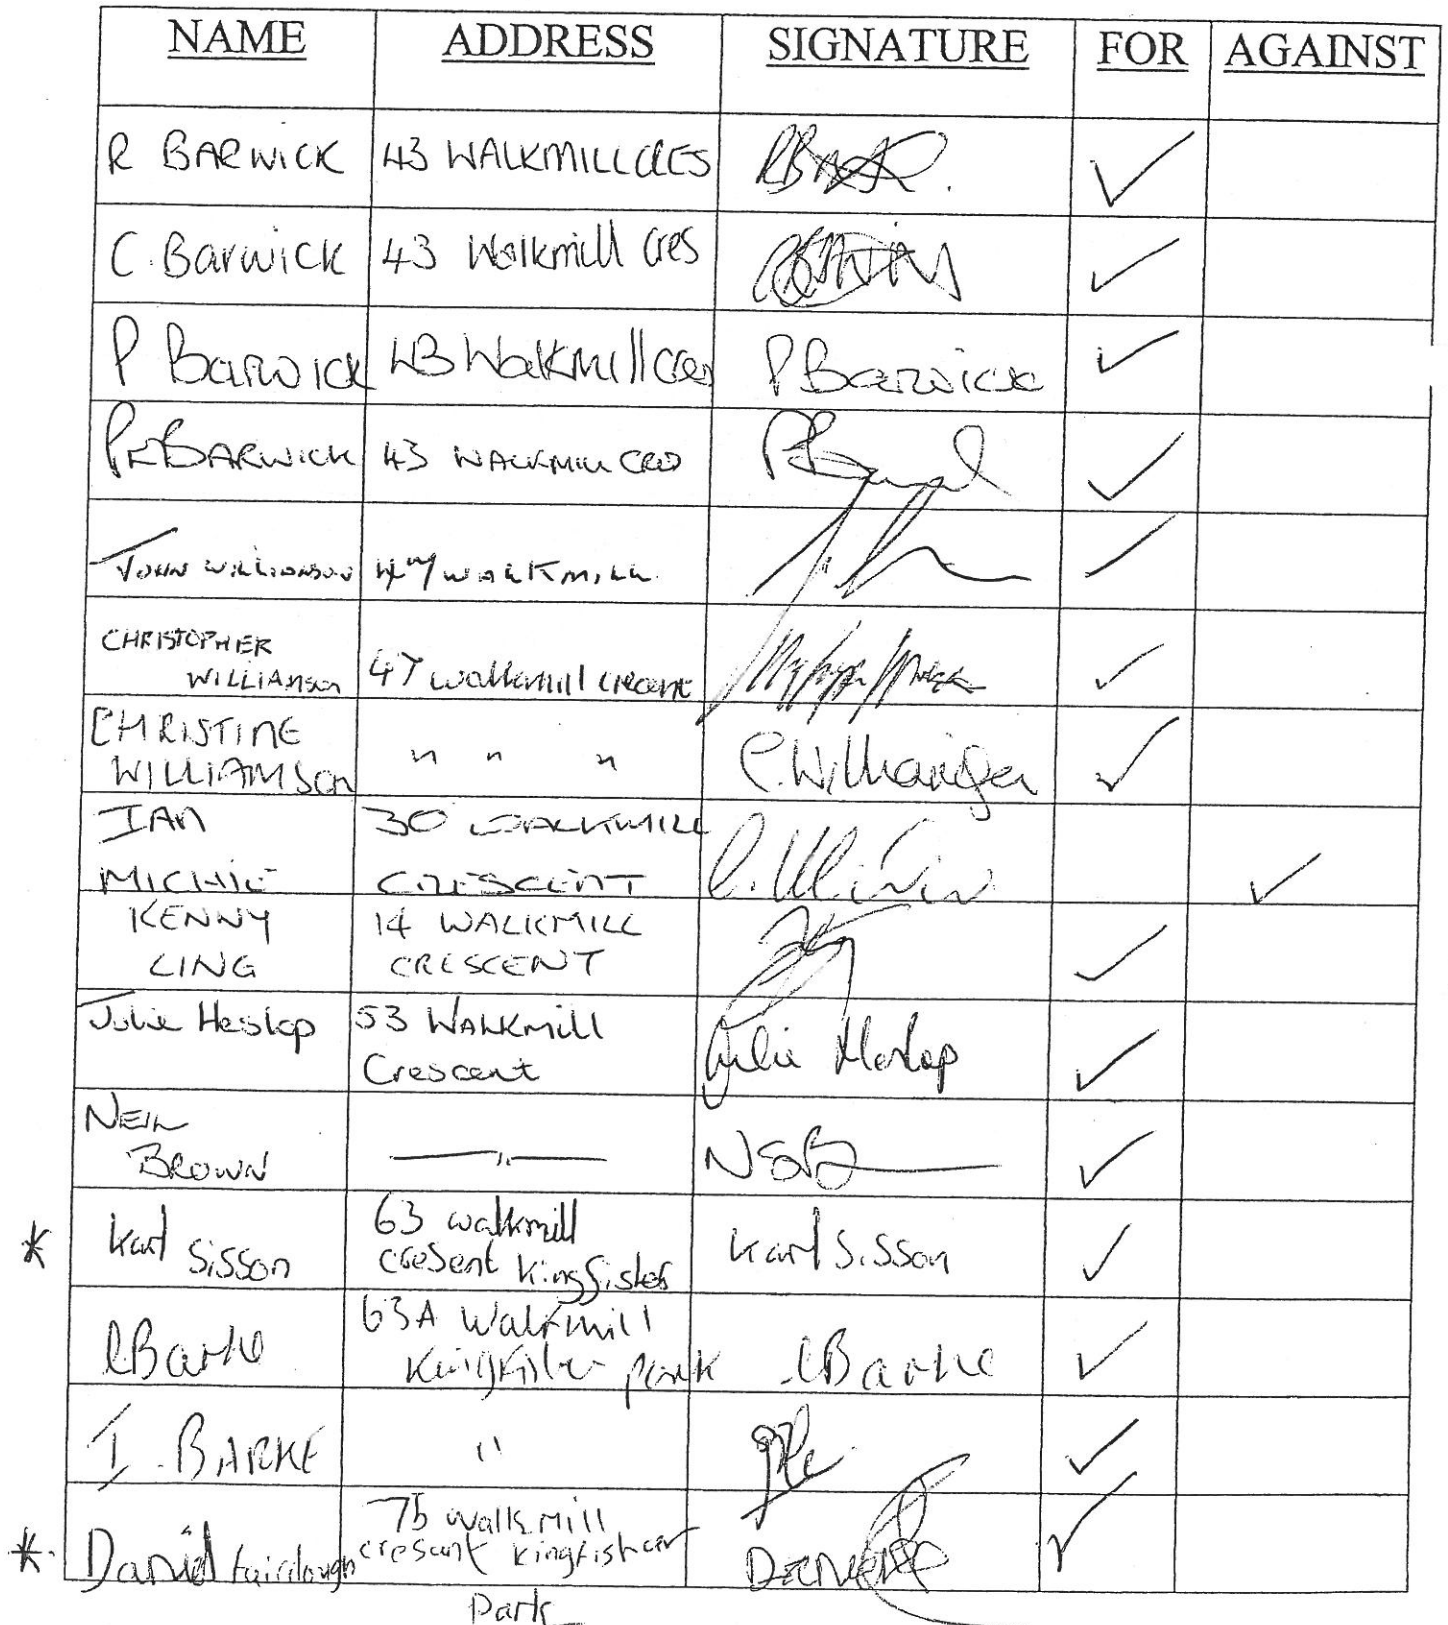 NAME ADDRESS SIGNATURE FOR AGAINST
R BARWICK 43 WALKMILL CRES
C. Barwick 43 Walkmill Cres
P Barwick 43 Walkmill Cres P Barwick
BARWICK 43 WALKMILL CRES
JOHN WILLIAMSON WALKMILL
CHRISTOPHER
WILLIAMSON 47 walkmill crecent
CHRISTINE
WILLIAMSON " " " C. Williamson
IAN 30 WALKMILL
MICHIE CRESCENT
KENNY 14 WALKMILL
LING CRESCENT
Julie Heslop 53 WALKMILL
Crescent Julie Heslop
NEIL
BROWN —"—
* Karl Sisson 63 walkmill
cresent Kingfisher Karl Sisson
Barke 63A Walkmill
Kingfisher park Barke
I. BARKE "
* Daniel Fairclough 75 walkmill
cresant kingfisher
Park